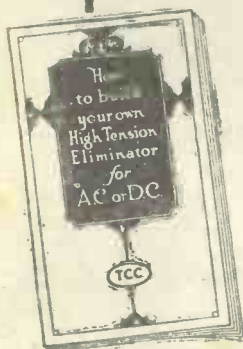 to
your own
High Tension
Eliminator
for
A.C. or D.C.
TCC